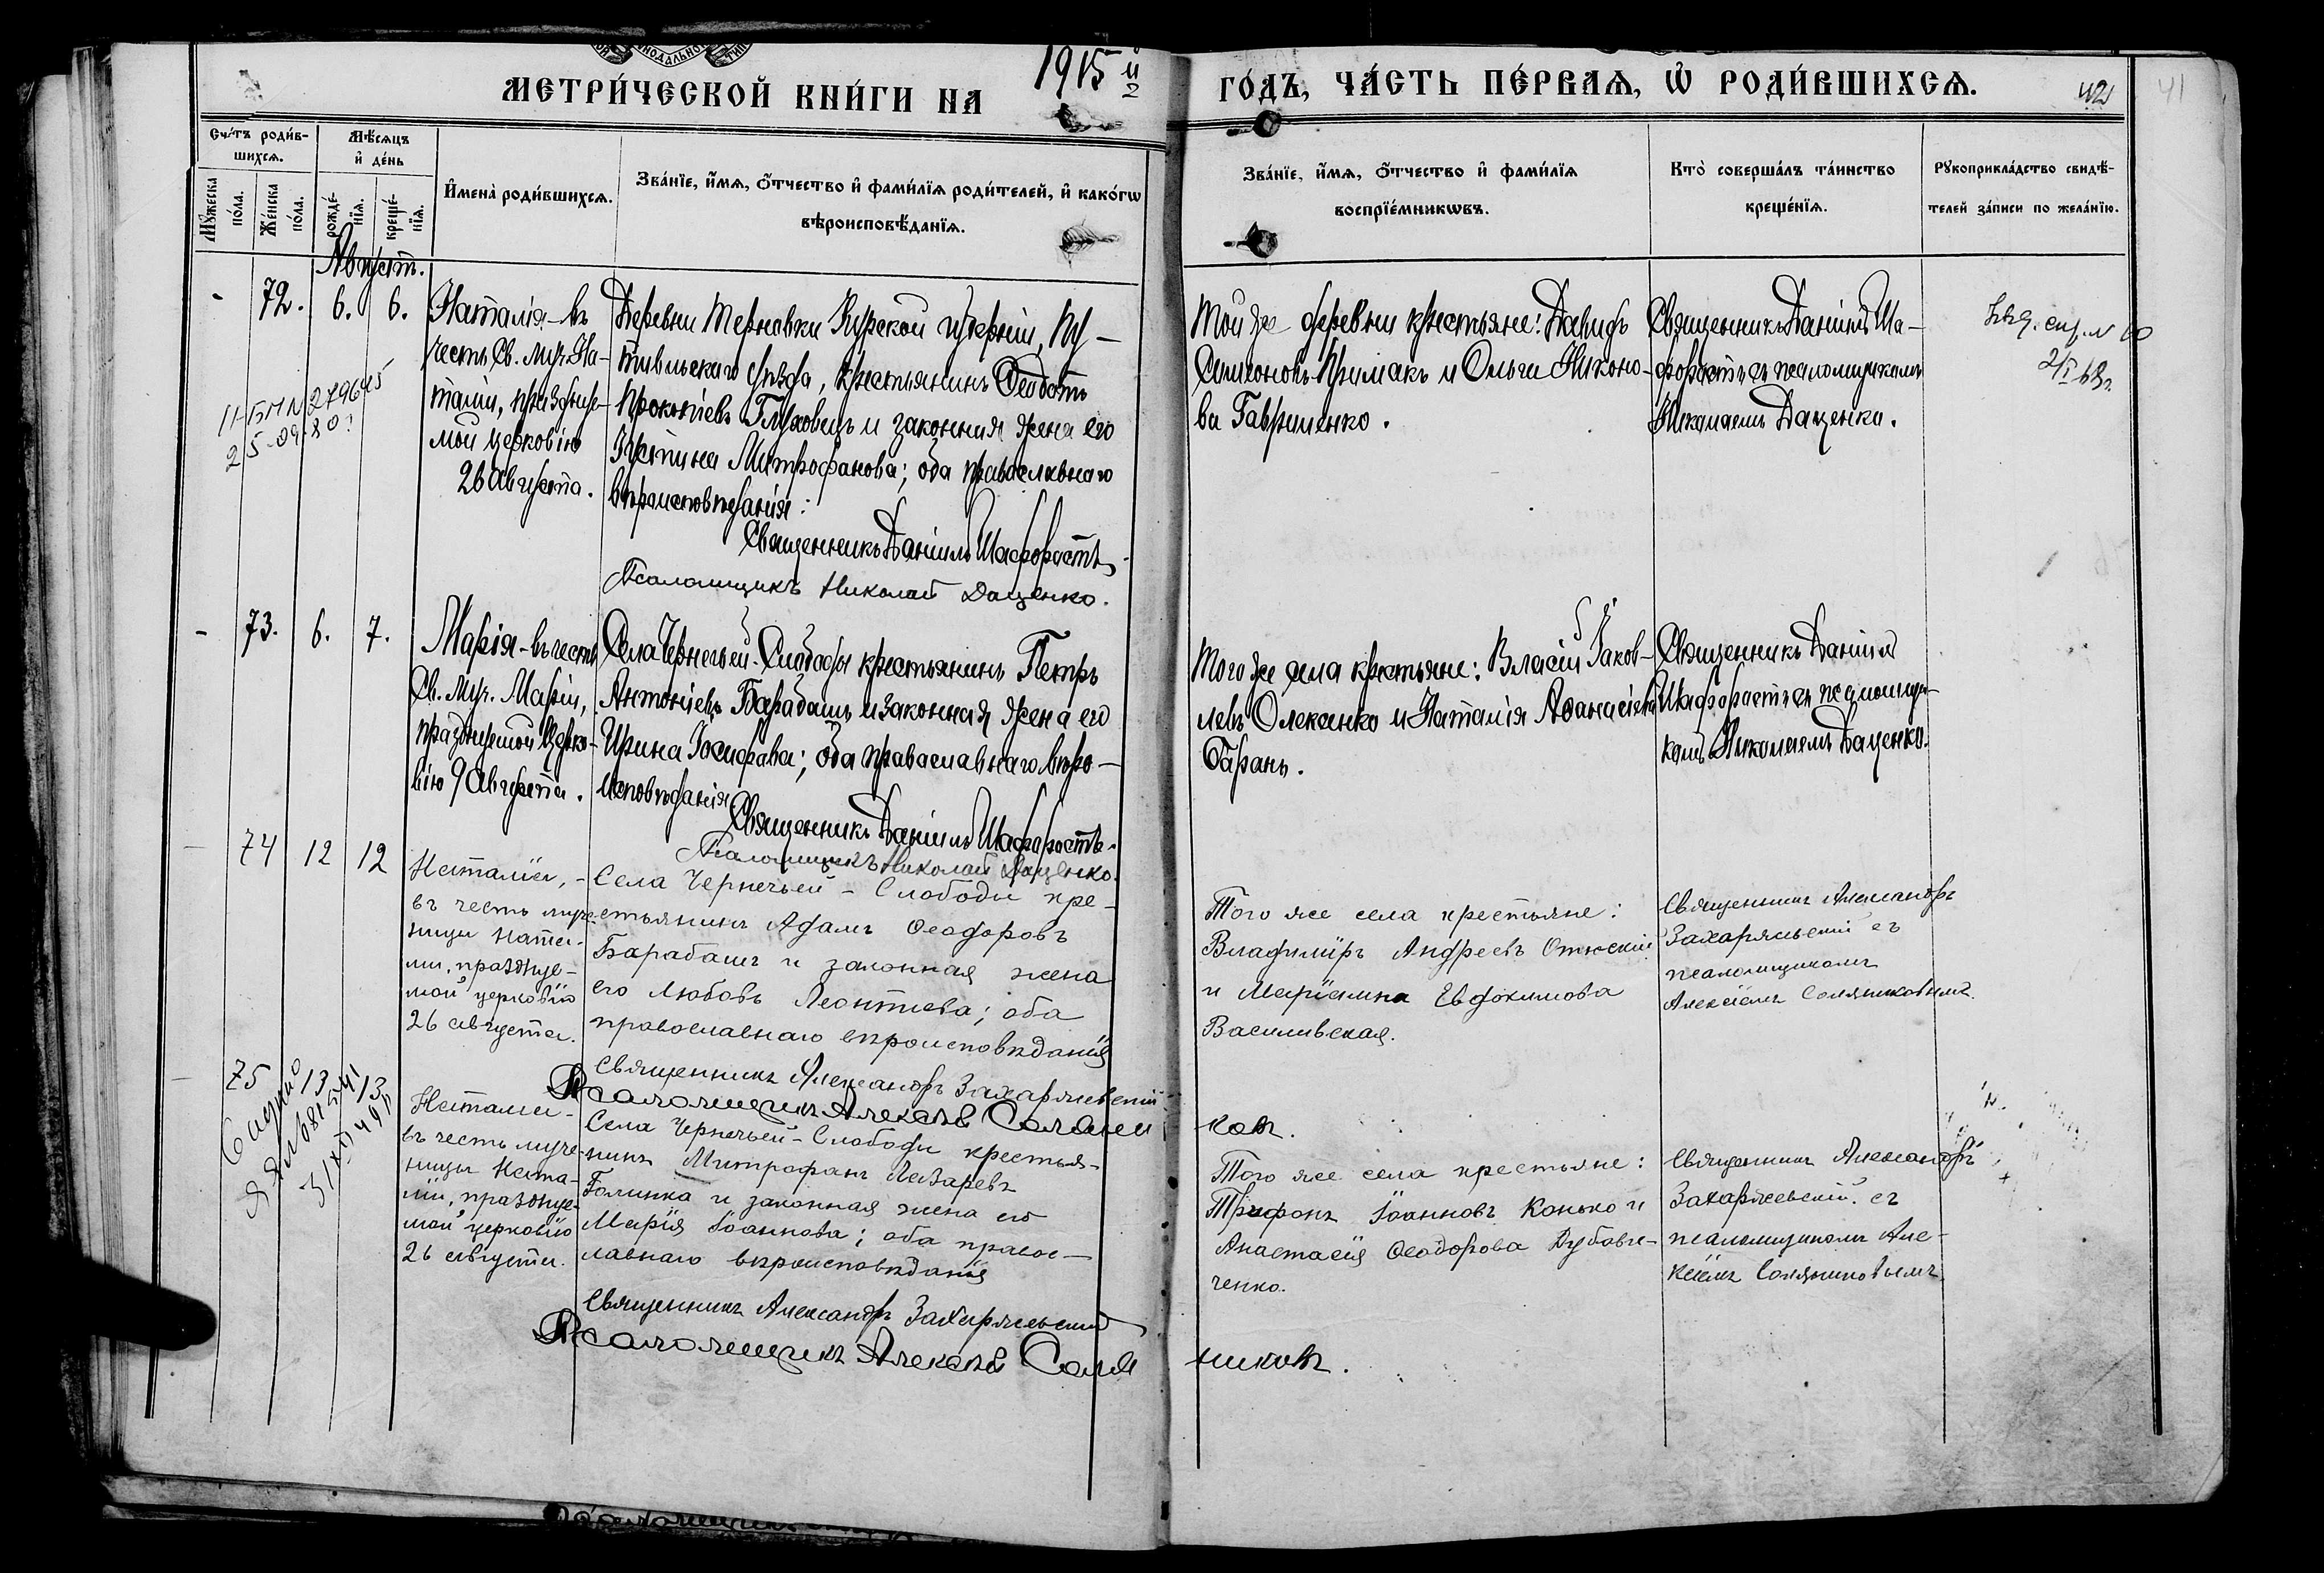 МЕТРИ́ЧЕСКОЙ КНИ́ГИ НА 1915 й
ГО́ДЪ, ЧА́СТЬ ПЕ́РВАЯ, Ѽ РОДИ́ВШИХСЯ.
42
41
Сче́тъ роди́в-
шихся.
Мѣ́сяцъ
и҆ де́нь
Мꙋ́жеска
по́ла.
Же́нска
по́ла.
рожде́-
нїя.
креще́-
нїя.
И҆мена̀ роди́вшихся.
Зва́нїе, и҆́мя, ѻ҆́тчество и҆ фами́лїя роди́телей, и҆ како́гѡ
вѣроисповѣ́данїя.
Зва́нїе, и҆́мя, ѻ҆́тчество и҆ фами́лїя
воспрїе́мникѡвъ.
Кто̀ соверша́лъ та́инство
креще́нїя.
Рꙋкоприкла́дство свидѣ́-
телей за́писи по жела́нїю.
Августъ.
- 72. 6. 6.
Наталія - въ
честь Св. муч. На-
таліи, празднуе-
мой церковію
26 Августа.
Деревни Терновки Курской губерніи, Пу-
тивльскаго уѣзда, крестьянинъ Ѳеодотъ
Прокопіевъ Глуховецъ и законная жена его
Устина Митрофанова; оба православнаго
вѣроисповѣданія:
Священникъ Даніилъ Шафоростъ
Псаломщикъ Николай Даценко.
Той же деревни крестьяне: Давидъ
Симеоновъ Примакъ и Ольга Никоно-
ва Гавриленко.
Священникъ Даніилъ Ша-
форостъ съ псаломщикомъ
Николаемъ Даценко.
II-БП N 279645
25-09-80г
- 73. 6. 7.
Марія - въ честь
Св. муч. Маріи,
празднуемой Церко-
вію 9 Августа.
Села Чернечьей-Слободы крестьянинъ Петръ
Антоніевъ Барабашъ и законная жена его
Ирина Іосифова; оба православнаго вѣро-
исповѣданія.
Священникъ Даніилъ Шафоростъ.
Псаломщикъ Николай Даценко.
Того же села крестьяне: Власій Іаков-
левъ Олексенко и Наталія Аѳанасіева
Таранъ.
Священникъ Даніилъ
Шафоростъ съ псаломщи-
комъ Николаемъ Даценко.
- 74 12 12
Наталія, -
въ честь муче-
ницы Ната-
ліи, празднуе-
мой церковію
26 августа.
Села Чернечьей - Слободы кре-
стьянинъ Адамъ Ѳеодоровъ
Барабашъ и законная жена
его Любовь Леонтіева; оба
православнаго вѣроисповѣданія
Священникъ Александръ Захаржевскій
Псаломщикъ Алексѣй Соляни
ковъ.
Того же села крестьяне:
Владиміръ Андреевъ
и Маріамна Евдокимова
Василивская.
Священникъ Александръ
Захаржевскій съ
псаломщикомъ
Алексіемъ Солянниковымъ.
- 75 13 13
Наталія -
въ честь муче-
ницы Ната-
ліи, празднуе-
мой церковію
26 августа.
Села Чернечьей - Слободы крестья-
нинъ Митрофанъ Лазаревъ
Голинка и законная жена его
Марія Іоаннова; оба право-
славнаго вѣроисповѣданія
Священникъ Александръ Захаржевскій
Псаломщикъ Алексѣй Соля
никовъ.
Того же села крестьяне:
Трифонъ Іоанновъ Конько и
Анастасія Ѳеодорова
ченко.
Священникъ Александръ
Захаржевскій съ
псаломщикомъ Але-
ксіемъ Солянниковымъ